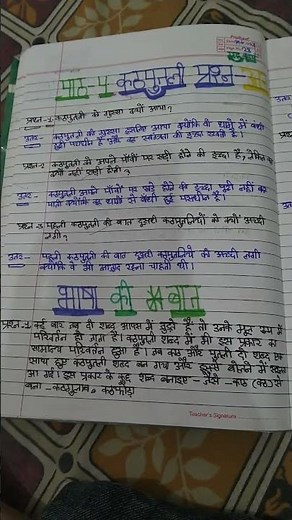 पाठ-4 कठपुतली प्रश्न-
प्रश्न-1 कठपुतली को गुस्सा क्यों आया?
उत्तर- कठपुतली को गुस्सा इसलिए आया क्योंकि वो धागों में बंधी
हुई पराधीन है और वह स्वतंत्रता की इच्छा रखती है।
प्रश्न-2 कठपुतली को अपने पाँवों पर खड़ी होने की इच्छा है, लेकिन वह
क्यों नहीं खड़ी होती?
उत्तर- कठपुतली अपने पाँवों पर खड़े होने की इच्छा पूरी नहीं कर
पाती क्योंकि वह धागों से बंधी हुई पराधीन है।
प्रश्न-3 पहली कठपुतली की बात दूसरी कठपुतलियों को क्यों अच्छी
लगी?
उत्तर- पहली कठपुतली की बात दूसरी कठपुतलियों को अच्छी लगी
क्योंकि वे भी आजाद रहना चाहती थी।
भाषा की बात
प्रश्न-1 कई बार जब दो शब्द आपस में जुड़ते हैं तो उनके मूल रूप में
परिवर्तन हो जाता है। कठपुतली शब्द में भी इस प्रकार का
सामान्य परिवर्तन हुआ है। जब काठ और पुतली दो शब्द एक
साथ हुए कठपुतली शब्द बन गया और इससे बोलने में सरलता
आ गई। इस प्रकार के कुछ शब्द बनाइए- जैसे-काठ (कठ) से
बना-कठगुलाब, कठफोड़ा
Teacher's Signature